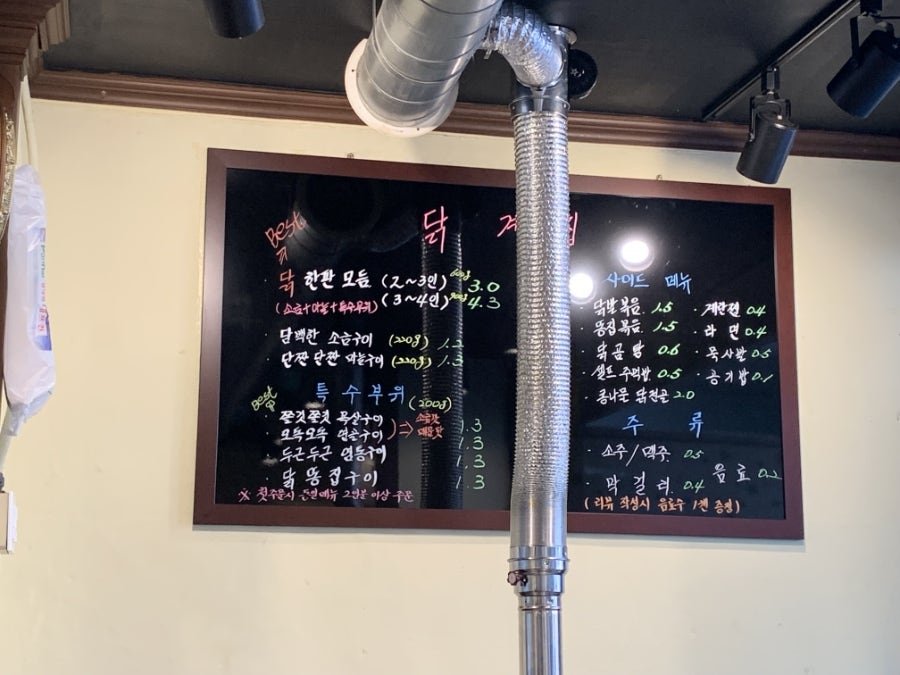 Best
닭
닭 한판 모듬 (2~3인) 600g 3.0
(소금+마늘+특수부위) (3~4인) 900g 4.3
· 담백한 소금구이 (220g) 1.2
· 단짠단짠 마늘구이 (220g) 1.3
Best 특수부위 (200g)
쫄깃쫄깃 목살구이 1.3
오독오독 연골구이 1.3
⇒ 소금맛 매콤맛
· 두근두근 염통구이 1.3
· 닭똥집구이 1.3
※ 첫주문시 구이메뉴 2인분 이상 주문
사이드 메뉴
· 닭발볶음 1.5
· 똥집볶음 1.5
· 닭곰탕 0.6
· 셀프 주먹밥 0.5
· 콩나물 닭전골 2.0
· 계란찜 0.4
· 라면 0.4
· 묵사발 0.5
· 공기밥 0.1
주류
· 소주/맥주 0.5
· 막걸리 0.4 음료 0.2
(리뷰 작성시 음료수 1캔 증정)